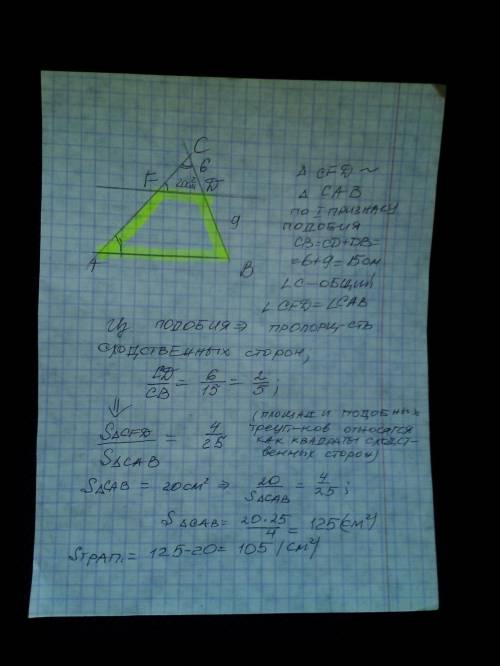 C
6
F
20см²
D
9
A
B
Δ CFD ~
Δ CAB
ПО I ПРИЗНАКУ
ПОДОБИЯ
CB=CD+DB=
=6+9=15см
∠C-ОБЩИЙ
∠CFD=∠CAB
Из ПОДОБИЯ⇒ ПРОПОРЦ-СТЬ
СХОДСТВЕННЫХ СТОРОН,
CD/CB = 6/15 = 2/5;
⇓
SΔCFD/SΔCAB = 4/25
(ПЛОЩАДИ ПОДОБНЫХ
ТРЕУГ-КОВ ОТНОСЯТСЯ
КАК КВАДРАТЫ СХОДСТ-
ВЕННЫХ СТОРОН)
SΔCAB = 20см² ⇒ 20/SΔCAB = 4/25;
SΔCAB= 20·25/4 = 125(см²)
SТРАП.= 125-20= 105 (см²)